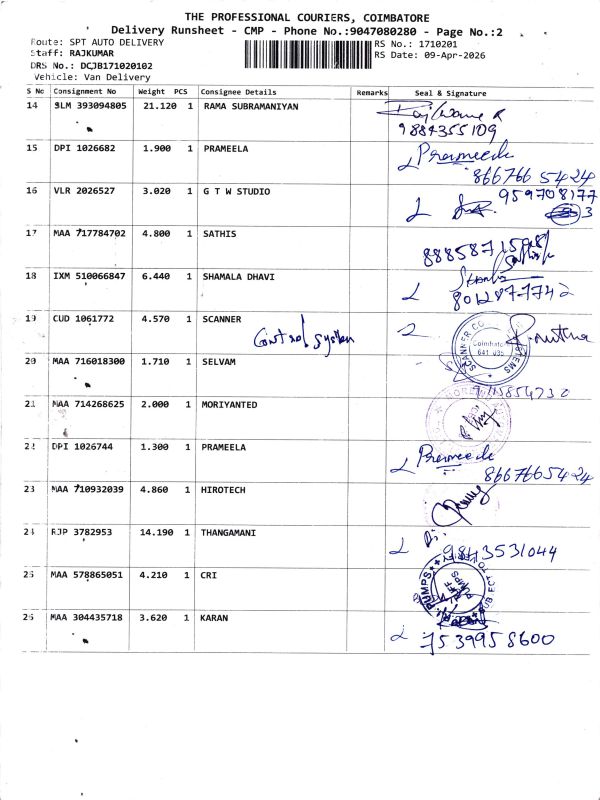 THE PROFESSIONAL COURIERS, COIMBATORE
Delivery Runsheet - CMP - Phone No.:9047080280 - Page No.:2
Route: SPT AUTO DELIVERY
RS No.: 1710201
Staff: RAJKUMAR
RS Date: 09-Apr-2026
DRS No.: DCJB171020102
Vehicle: Van Delivery
S No Consignment No Weight PCS Consignee Details Remarks Seal & Signature
14 SLM 393094805 21.120 1 RAMA SUBRAMANIYAN
9884355109
15 DPI 1026682 1.900 1 PRAMEELA Prameela
8667665424
16 VLR 2026527 3.020 1 G T W STUDIO
17 MAA 717784702 4.800 1 SATHIS
18 IXM 510066847 6.440 1 SHAMALA DHAVI
8012877742
19 CUD 1061772 4.570 1 SCANNER
Control system
SCANNER CO SYSTEMS
Coimbatore
641 035
20 MAA 716018300 1.710 1 SELVAM
21 MAA 714268625 2.000 1 MORIYANTED
22 DPI 1026744 1.300 1 PRAMEELA Prameela
8667665424
23 MAA 710932039 4.860 1 HIROTECH
24 RJP 3782953 14.190 1 THANGAMANI
9843531044
25 MAA 578865051 4.210 1 CRI
PUMPS SUBJECT TO VERIFY
26 MAA 304435718 3.620 1 KARAN
7539958600